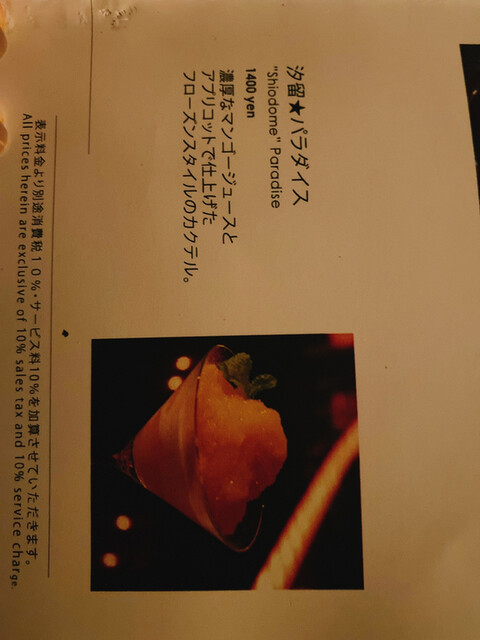 汐留★パラダイス
"Shiodome" Paradise
1400 yen
濃厚なマンゴージュースと
アプリコットで仕上げた
フローズンスタイルのカクテル。
表示料金より別途消費税10%・サービス料10%を加算させていただきます。
All prices herein are exclusive of 10% sales tax and 10% service charge.